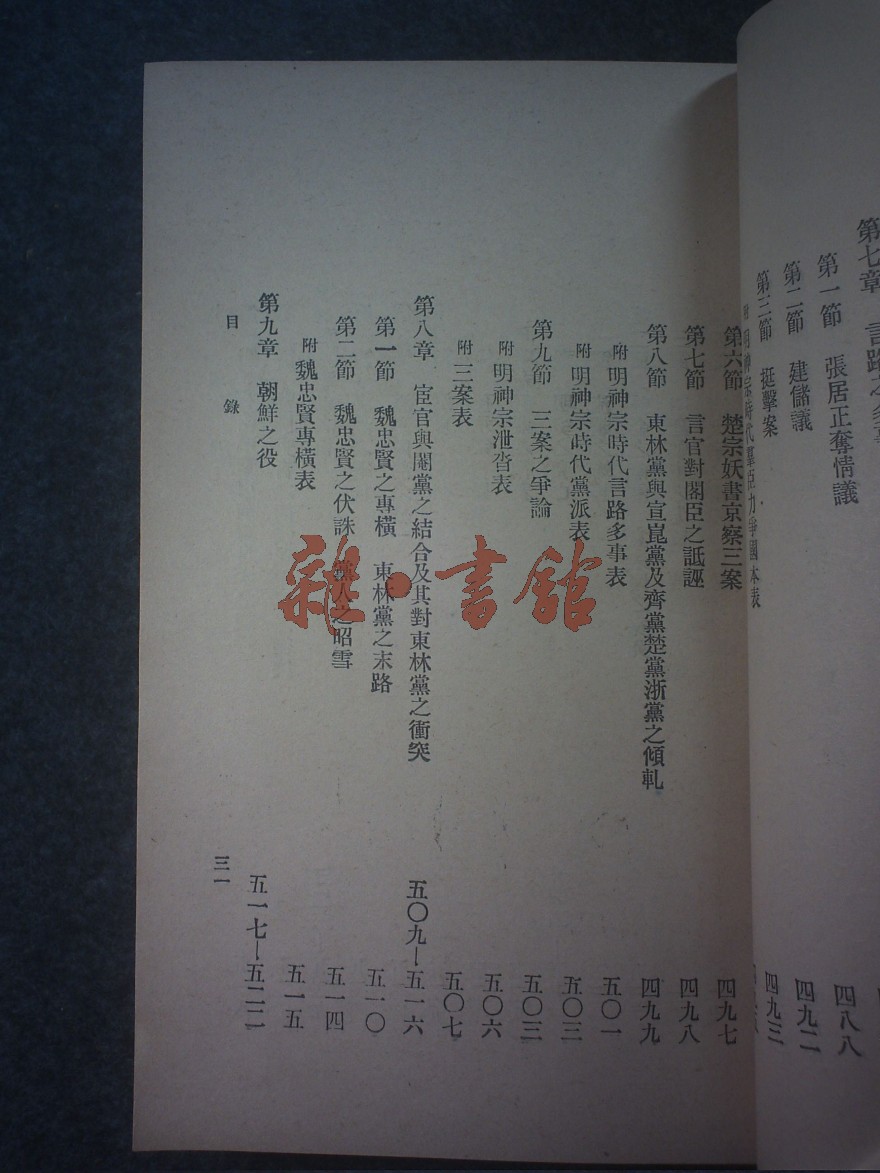 第七章 言路之
第一節 張居正奪情議 四八八
第二節 建儲議 四九二
第三節 挺擊案 四九三
附 明神宗時代羣臣力爭國本表
第六節 楚宗妖書京察三案 四九七
第七節 言官對閣臣之詆誣 四九八
第八節 東林黨與宣崑黨及齊黨楚黨浙黨之傾軋 四九九
附 明神宗時代言路多事表 五〇一
附 明神宗時代黨派表 五〇三
第九節 三案之爭論 五〇三
附 明神宗泄沓表 五〇六
附 三案表 五〇七
第八章 宦官與閹黨之結合及其對東林黨之衝突 五〇九—五一六
第一節 魏忠賢之專橫 東林黨之末路 五一〇
第二節 魏忠賢之伏誅 黨人之昭雪 五一四
附 魏忠賢專橫表 五一五
第九章 朝鮮之役 五一七—五二二
目錄 三一
雜·書館